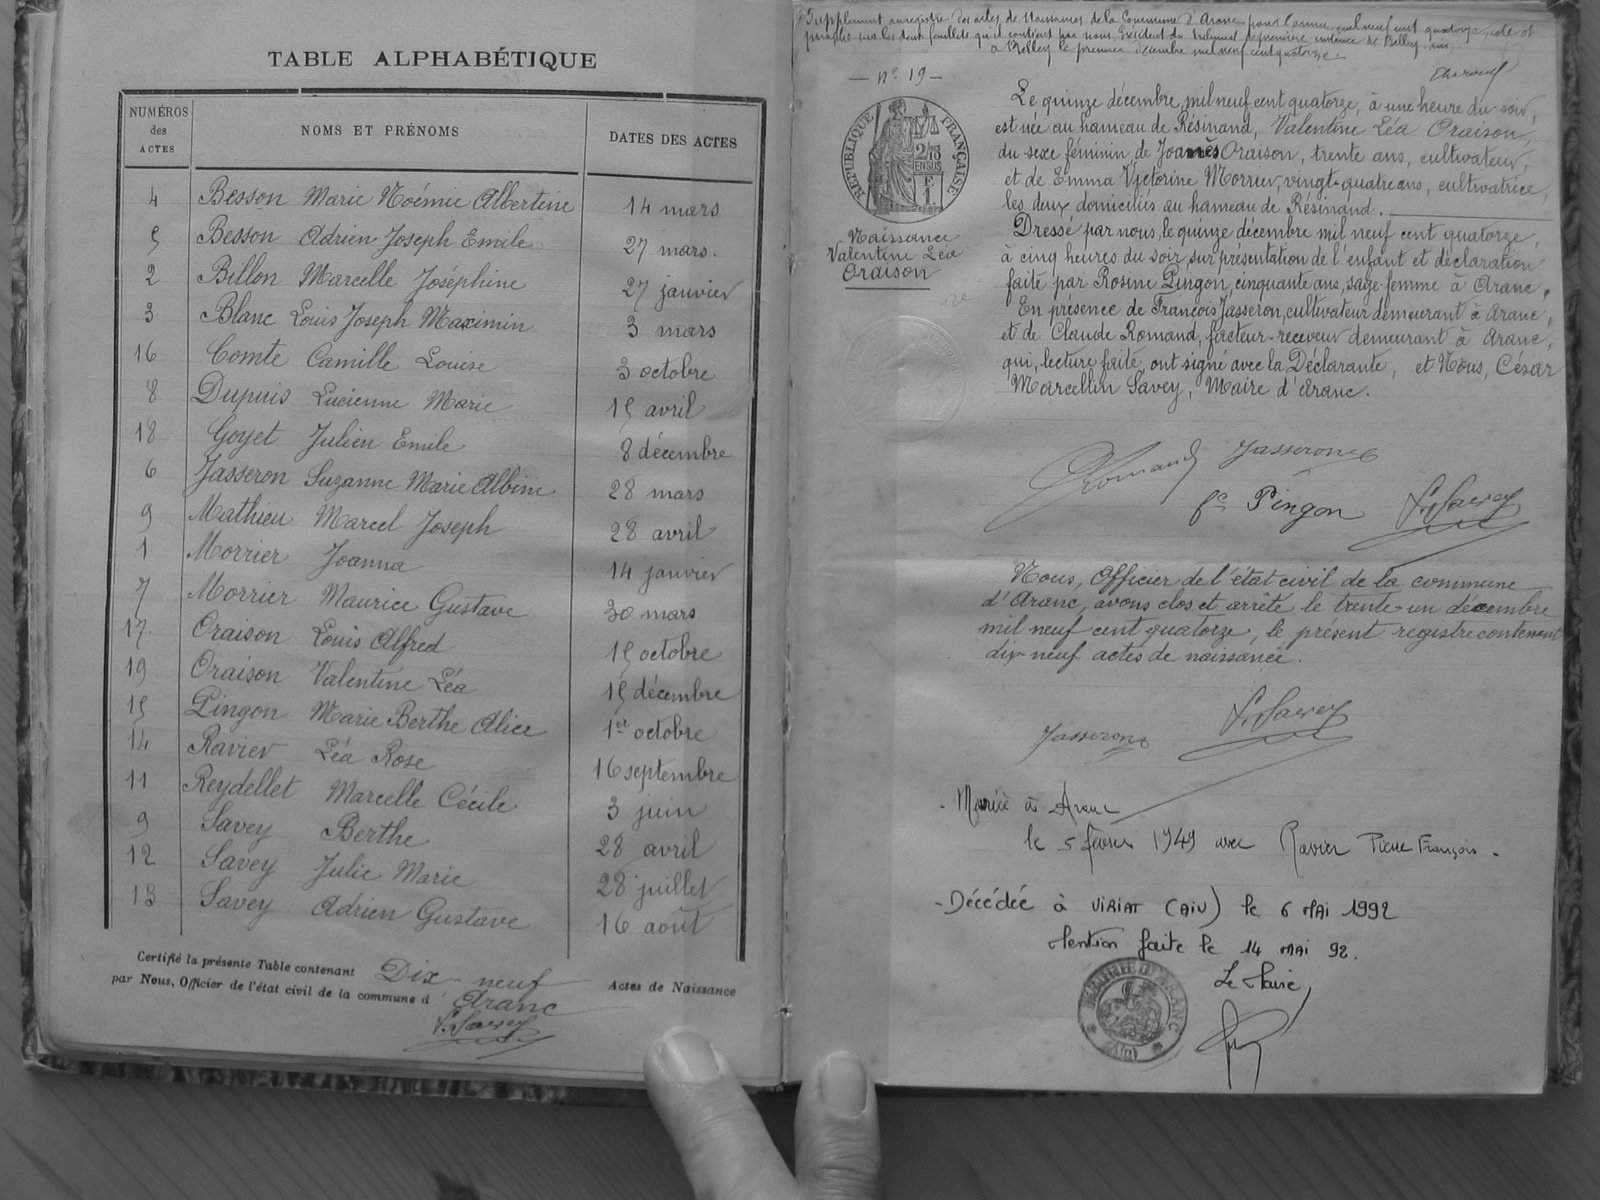 TABLE ALPHABÉTIQUE
NUMÉROS des ACTES NOMS ET PRÉNOMS DATES DES ACTES
4 Besson Marie Noémie Albertine 14 mars
5 Besson Adrien Joseph Emile 27 mars.
2 Billon Marcelle Joséphine 27 janvier
3 Blanc Louis Joseph Maximin 3 mars
16 Comte Camille Louise 3 octobre
8 Dupuis Lucienne Marie 15 avril
18 Goyet Julien Emile 8 décembre
6 Jasseron Suzanne Marie Albine 28 mars
9 Mathieu Marcel Joseph 28 avril
1 Morrier Joanna 14 janvier
7 Morrier Maurice Gustave 30 mars
17 Oraison Louis Alfred 15 octobre
19 Oraison Valentine Léa 15 décembre
15 Pingon Marie Berthe Alice 1er octobre
14 Ravier Léa Rose 16 septembre
11 Reydellet Marcelle Cécile 3 juin
9 Savey Berthe 28 avril
12 Savey Julie Marie 28 juillet
13 Savey Adrien Gustave 16 août
Certifié la présente Table contenant Dix-neuf Actes de Naissance
par Nous, Officier de l'état civil de la commune d'Aranc
Savey
Supplément au registre des actes de Naissances de la Commune d'Aranc pour l'année mil neuf cent quatorze, coté et
paraphé sur les deux feuillets qu'il contient par nous, Président du tribunal de première instance de Belley, Ain,
à Belley le premier décembre mil neuf cent quatorze
— N° 19 —
RÉPUBLIQUE FRANÇAISE
2/10 EN SUS
F. 1
Naissance
Valentine Léa
Oraison
Le quinze décembre mil neuf cent quatorze, à une heure du soir,
est née au hameau de Résinand, Valentine Léa Oraison,
du sexe féminin, de Joanès Oraison, trente ans, cultivateur,
et de Emma Victorine Morrier, vingt-quatre ans, cultivatrice,
les deux domiciliés au hameau de Résinand.
Dressé par nous, le quinze décembre mil neuf cent quatorze,
à cinq heures du soir, sur présentation de l'enfant et déclaration
faite par Rosine Pingon, cinquante ans, sage-femme à Aranc,
En présence de François Jasseron, cultivateur demeurant à Aranc,
et de Claude Romand, facteur-receveur demeurant à Aranc,
qui, lecture faite, ont signé avec la Déclarante, et Nous, César
Marcellin Savey, Maire d'Aranc.
Romand Jasseron
fe Pingon Savey
Nous, Officier de l'état civil de la commune
d'Aranc, avons clos et arrêté le trente-un décembre
mil neuf cent quatorze, le présent registre contenant
dix-neuf actes de naissance.
Jasseron Savey
- Mariée à Aranc
le 5 février 1949 avec Ravier Pierre François.
- Décédée à VIRIAT (AIN) le 6 MAI 1992
Mention faite le 14 MAI 92.
Le Maire
MAIRIE D'ARANC (Ain)